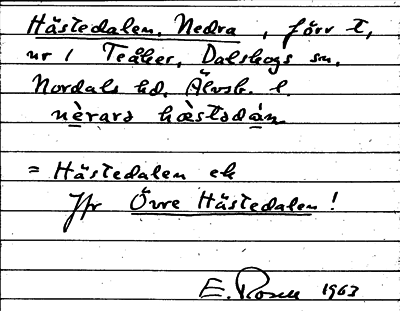 Hästedalen, Nedra, förr t.
nr 1 Teåker, Dalskogs sn.
Nordals hd. Älvsb. l.
nè̱rarə hæ̀stədá̱n
= Hästedalen ek
Jfr Övre Hästedalen!
E. Rosell 1963